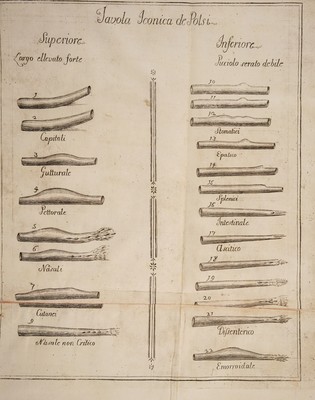 Tavola Iconica de Polsi
Superiore
Largo ellevato forte
1
2
Capitali
3
Gutturale
4
Pettorale
5
6
Nasali
7
Cutanei
9
Nasale non Critico
Inferiore
Picciolo serato debile
10
11
12
Stomatici
13
Epatico
14
15
Splenici
16
Intestinale
17
Ascitico
18
19
20
21
Dissenterico
22
Emorroidale